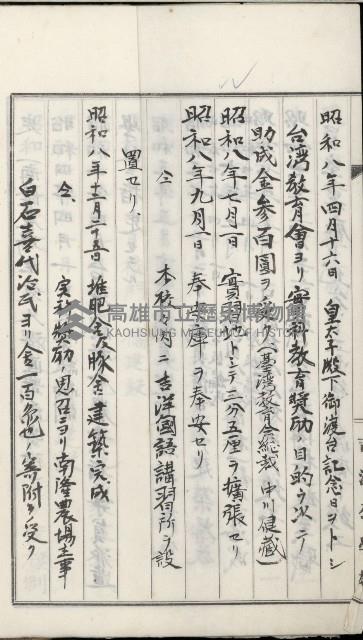 昭和八年四月十六日 皇太子殿下御渡台記念日ヲトシ
台湾教育會ヨリ実科教育奨励ノ目的ヲ以テ
助成金参百圓ヲ (台湾教育会総裁 中川健蔵)
昭和八年七月一日 實習地トシテ二分五厘ヲ擴張セリ
昭和八年九月一日 奉安庫ヲ奉安セリ
仝 本校内ニ吉洋國語講習所ヲ設
置セリ、
昭和八年十二月二十五日 堆肥舎豚舎建築完成
仝、 実科奨励ノ思召ニヨリ南隆農場主事
白石喜代治氏ヨリ金一百 也ノ寄附ヲ受ク
高雄市立歷史博物館
KAOHSIUNG MUSEUM OF HISTORY